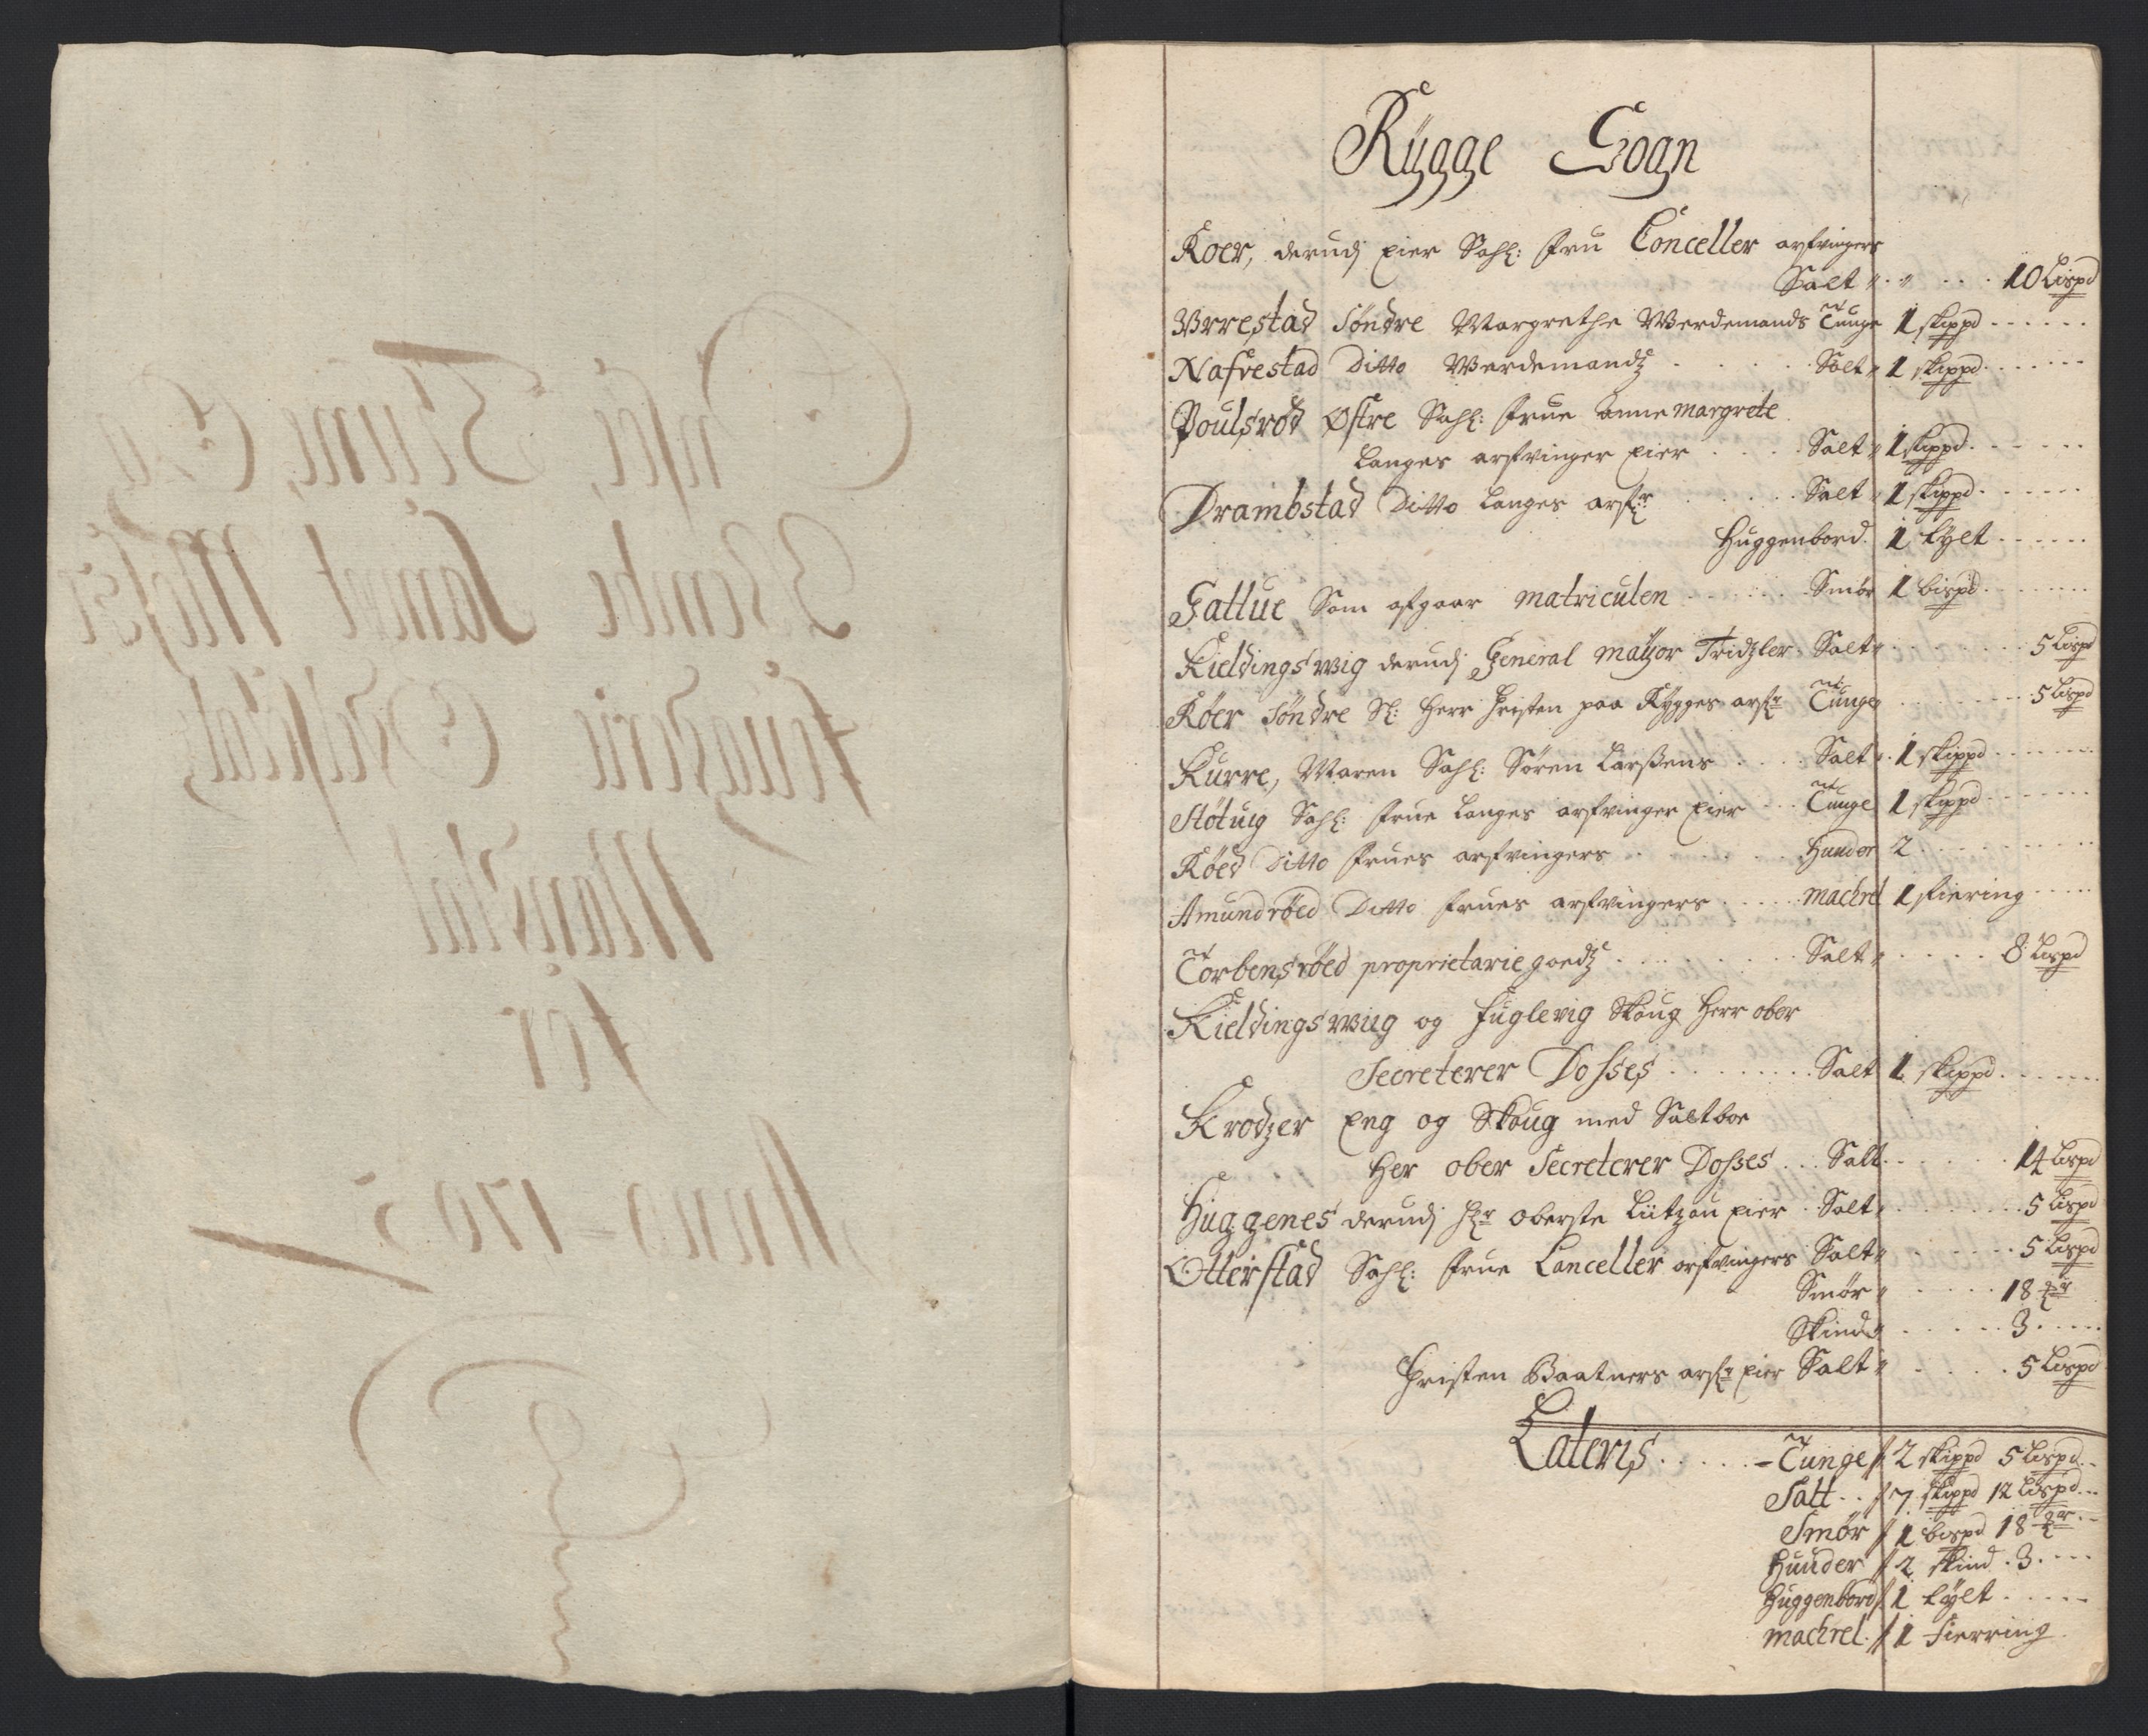 Rygge Sogn
Roer, derudj Eier Sahl: Fru Conceller arfvinger
Salt " " 10 Lispd
Vrrestad Søndre Margrethe Werdemands Tunge 1 skippd
Nafvestad Ditto Werdemandz Salt " 1 skippd
Poulsrød Østre Sahl: Frue Anne Margrete
Langes arfvinger Eier Salt " 1 skippd
Drambstad Ditto Langes arf:r Salt " 1 skippd
Huggenbord 1 tylt
Gatlue Som afgaar matriculen Smør 1 bispd
Kieldings wig derudj General Mayor Tridzler Salt " 5 Lispd
Röer Søndre Sl: Herr Christen paa Rygges arf:r Tunge 5 Lispd
Kurre, Maren Sahl: Søren Larssens Salt " 1 skippd
Støtuig Sahl: Frue Langes arfvinger Eier Tunge 1 skippd
Røed Ditto Frues arfvingers Huuder 2
Amundrøed Ditto Frues arfvingers machrel 1 fiering
Torbensrøed proprietarie goedz Salt " 8 Lispd
Kieldings wiig og Fuglevig Skoug Herr ober
Secreterer Dosses Salt 1 skippd
Krodzer Eng og Skoug med Saltboe
Her ober Secreterer Dosses Salt 14 Lispd
Huggenes derudj Hr Oberste Lützou Eier Salt " 5 Lispd
Otterstad Sahl: Frue Canceller arfvingers Salt " 5 Lispd
Smør " 18 mr
Skind " 3
Christen Baatners arf:r Eier Salt " 5 Lispd
Lateris Tunge / 2 skippd 5 Lispd
Salt / 7 skippd 12 Lispd
Smør / 1 bispd 18 mr
Huuder / 2 skind 3
Huggenbord / 1 tylt
machrel / 1 fierring